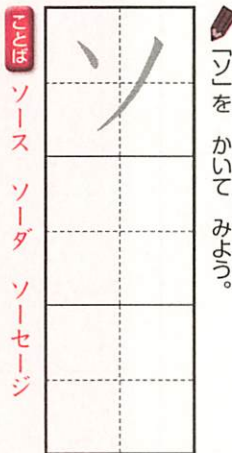 「ソ」を　かいて　みよう。
ソ
ことば　ソース　ソーダ　ソーセージ